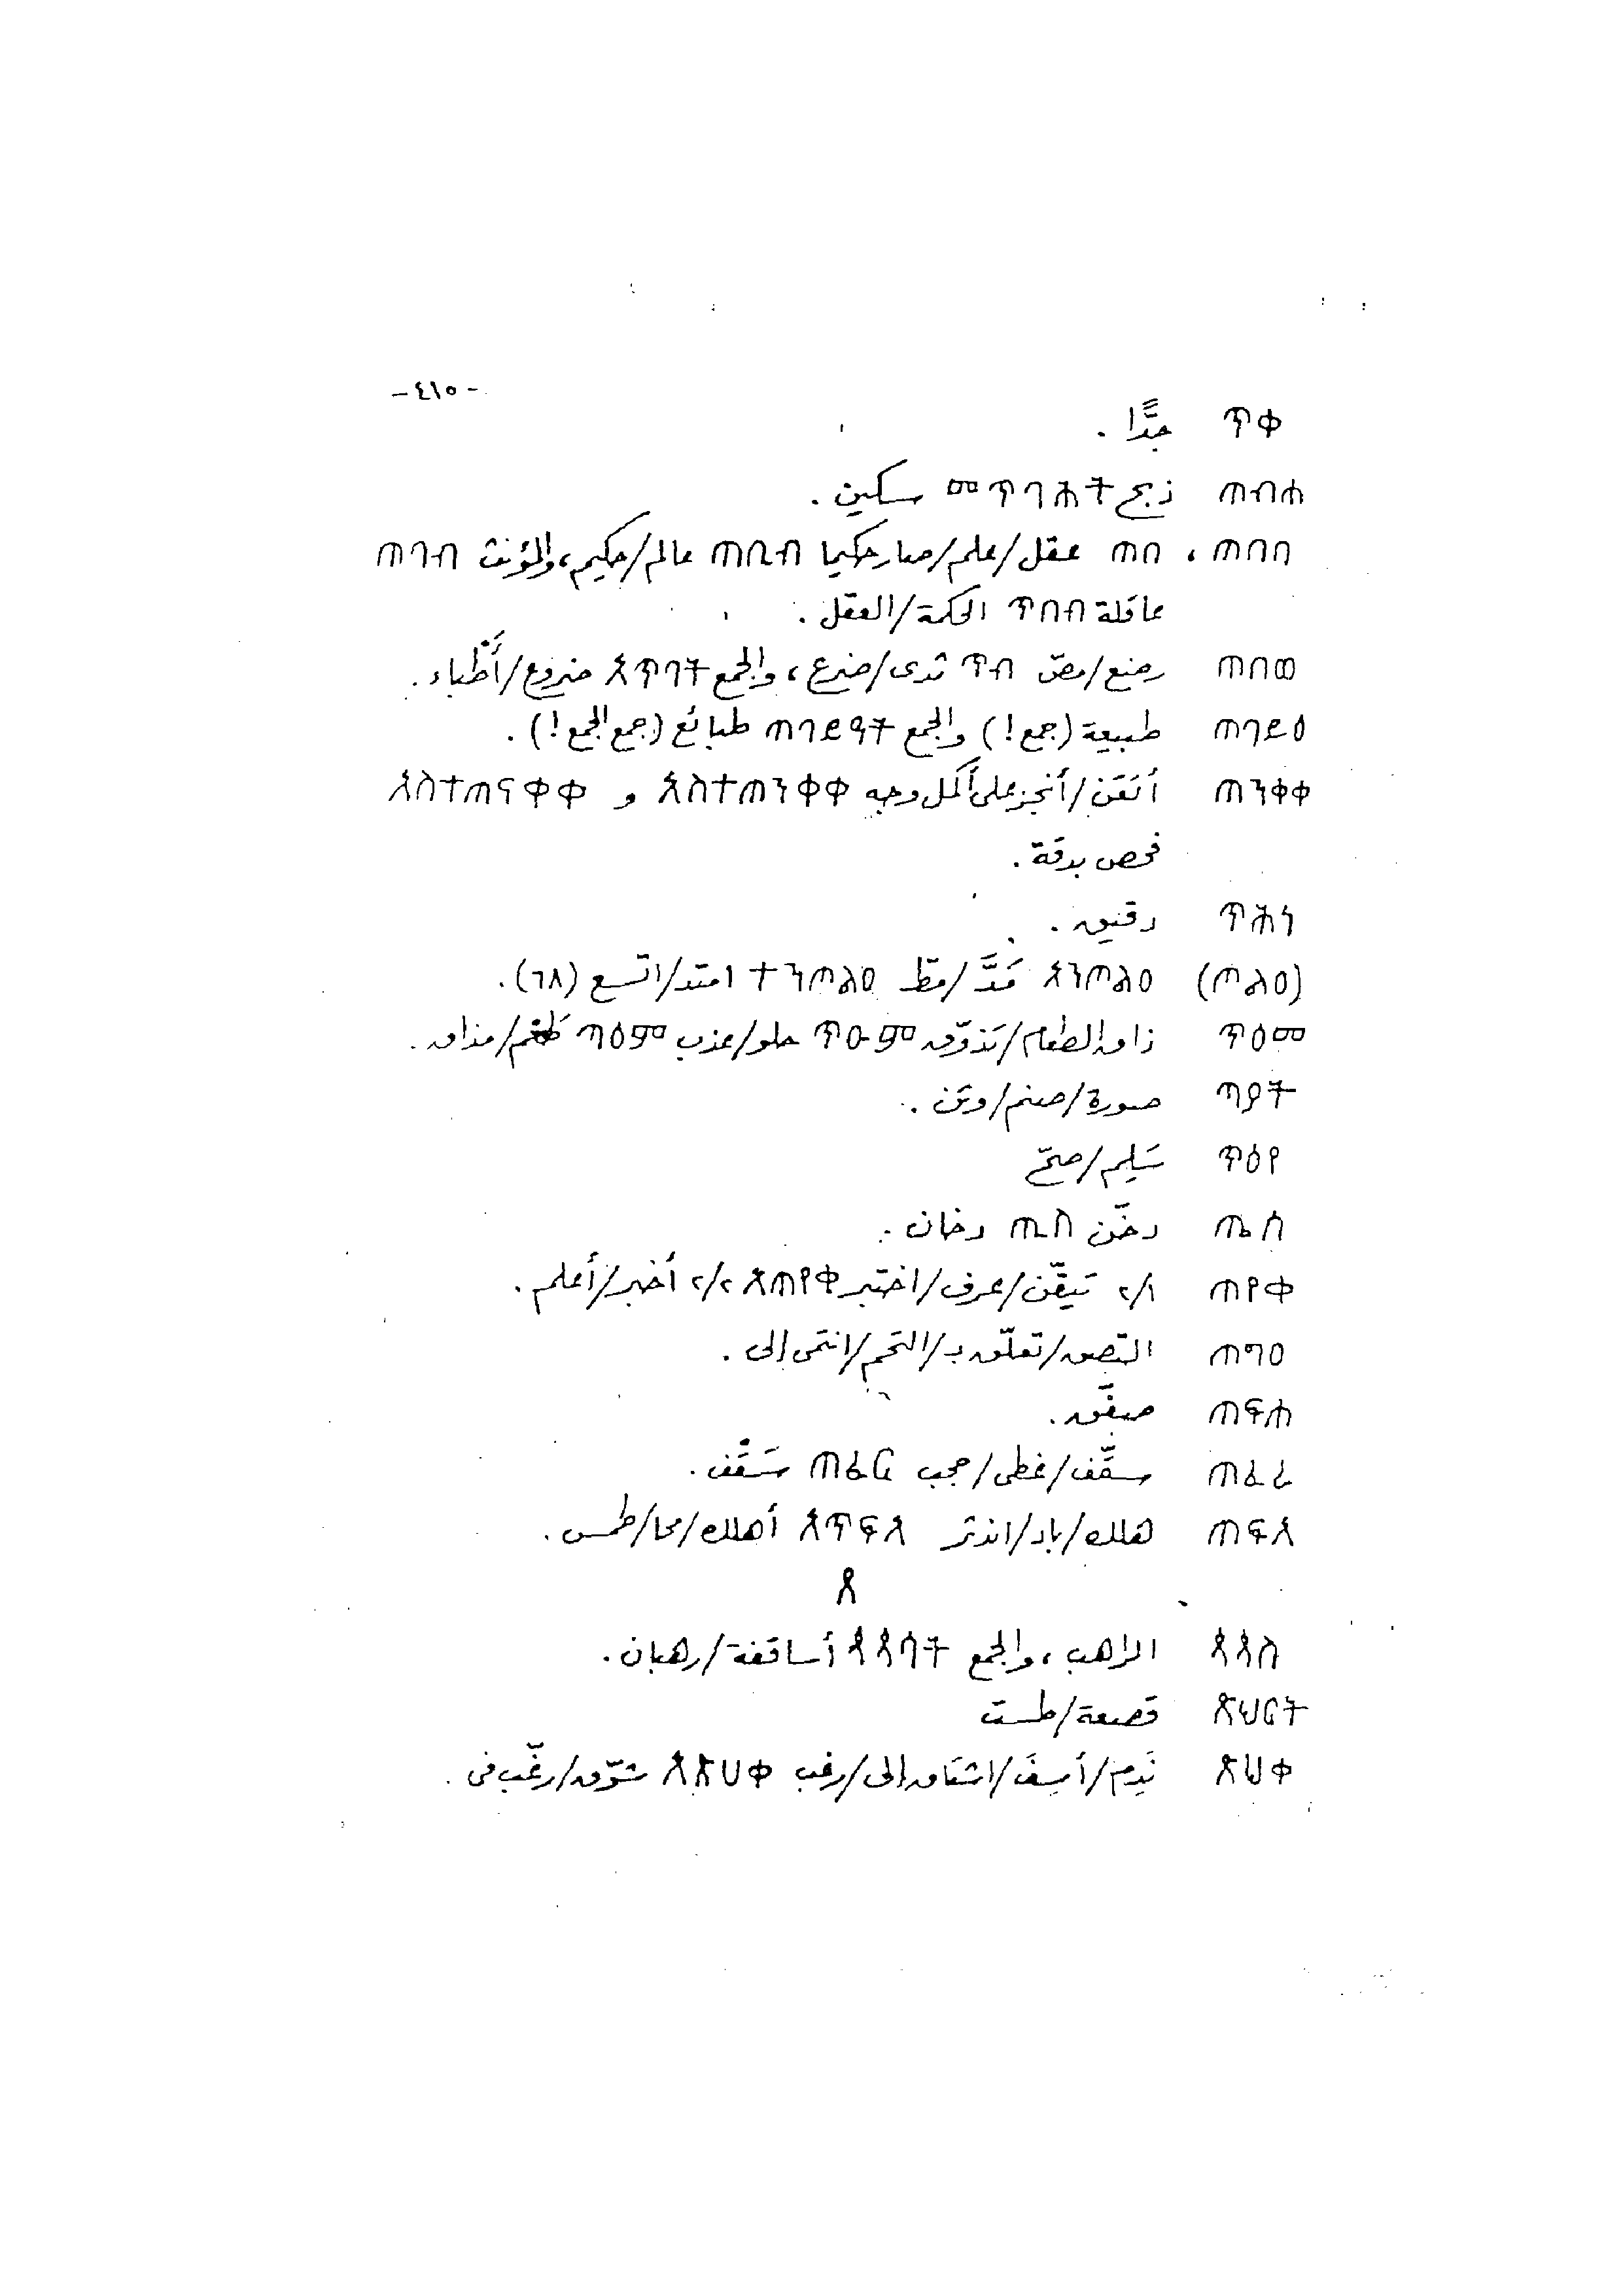 -٤١٥-
ጥቀ جدًّا .
ጠብሐ ذبح መጥባሕት سكين .
ጠበበ ، ጠበ عقل/علم/صار حكيما ጠቢብ عالم/حكيم، والمؤنث ጠባብ
عاقلة ጥበብ الحكمة/العقل .
ጠበወ رضع/مصّ ጥብ ثدى/ضرع، والجمع አጥባት ضروع/أَطْباء .
ጠባይዕ طبيعة (جمع!) والجمع ጠባይዓት طبائع (جمع الجمع!) .
ጠንቀቀ أتقن/أنجز على أكمل وجه አስተጠንቀቀ و አስተጠናቀቀ
فحص بدقة .
ጥሑን رقيق .
(ጠልዐ) አንጠልዐ مَدَّ/مطّ ተንጠልዐ امتد/اتسع (٦٨).
ጥዕመ ذاق الطعام/تذوّق ጥዑም حلو/عذب ጣዕም طعم/مذاق .
ጣዖት صورة/صنم/وثن .
ጥዕየ سَلِم/صحّ
ጤሰ دخّن ጢስ دخان .
ጠየቀ ٢/١ تيقّن/عرف/اختبر አጠየቀ ٢/٢ أخبر/أعلم .
ጠግዐ التصق/تعلّق بـ/التحم/انتمى إلى .
ጠፍሐ صفّق .
ጠፈረ سقّف/غطى/حجب ጠፈር سَقْف .
ጠፍአ هلك/باد/اندثر አጥፍአ أهلك/محا/طمس .
ጰ
ጳጳስ الراهب، والجمع ጳጳሳት أساقفة/رهبان .
ጽሀርት قصعة/طست
ጽህቀ نَدِم/أَسِفَ/اشتاق إلى/رغب አጽሀቀ شوّق/رغّب فى .